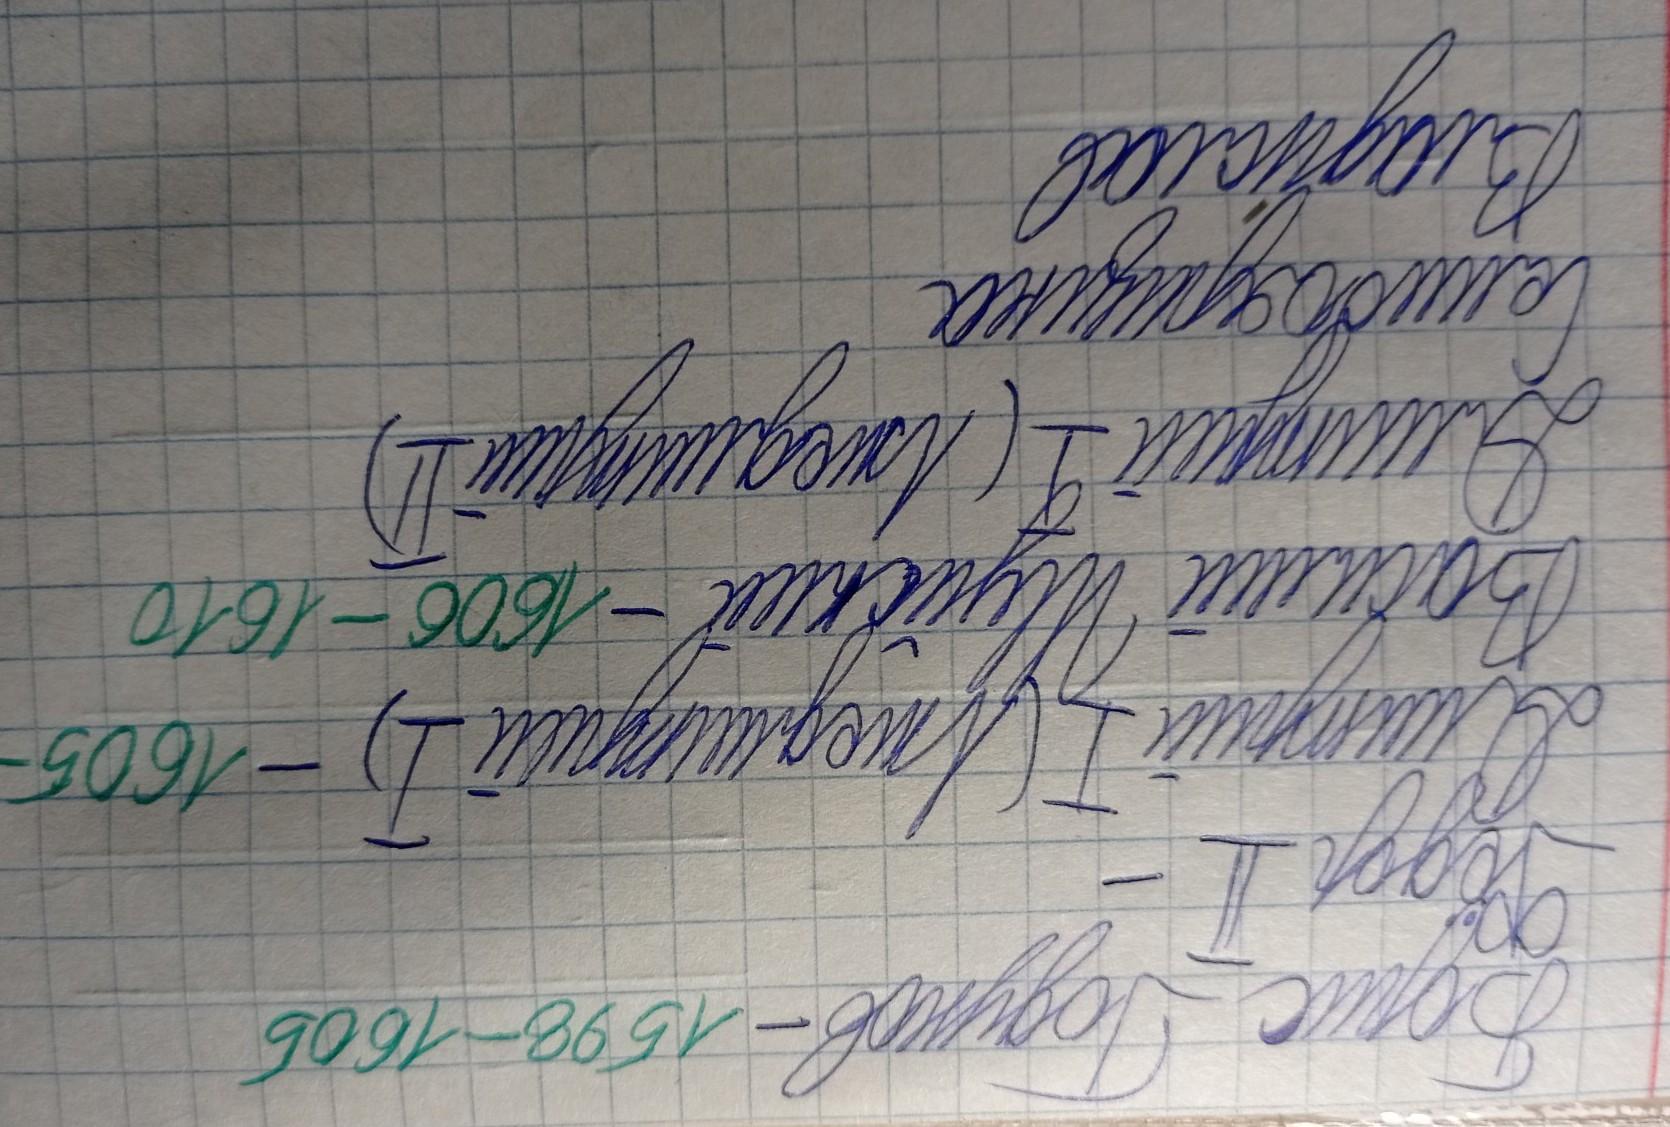 Борис Годунов - 1598-1605
Фёдор II -
Дмитрий I (Лжедмитрий I) - 1605-
Василий Шуйский - 1606-1610
Дмитрий I (Лжедмитрий II)
Семибоярщина
Владислав